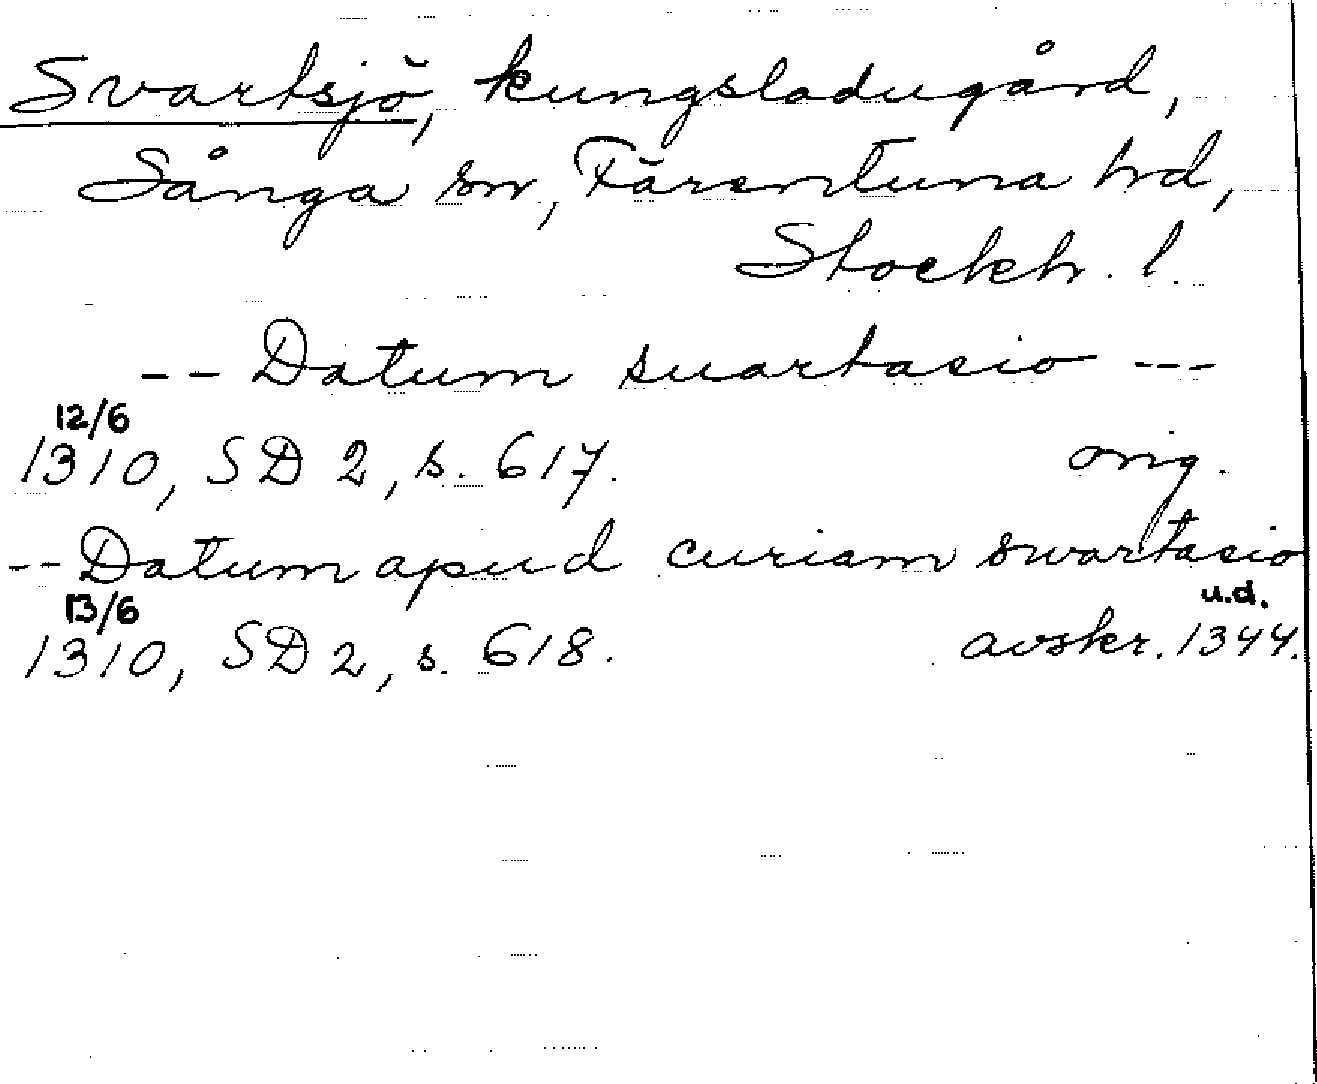 Svartsjö, kungsladugård,
Sånga sn, Färentuna hd,
Stockh. l.
-- Datum suartasio ---
12/6
1310, SD 2, s. 617. orig.
-- Datum apud curiam swartasio
13/6 u.d.
1310, SD 2, s. 618. avskr. 1344.